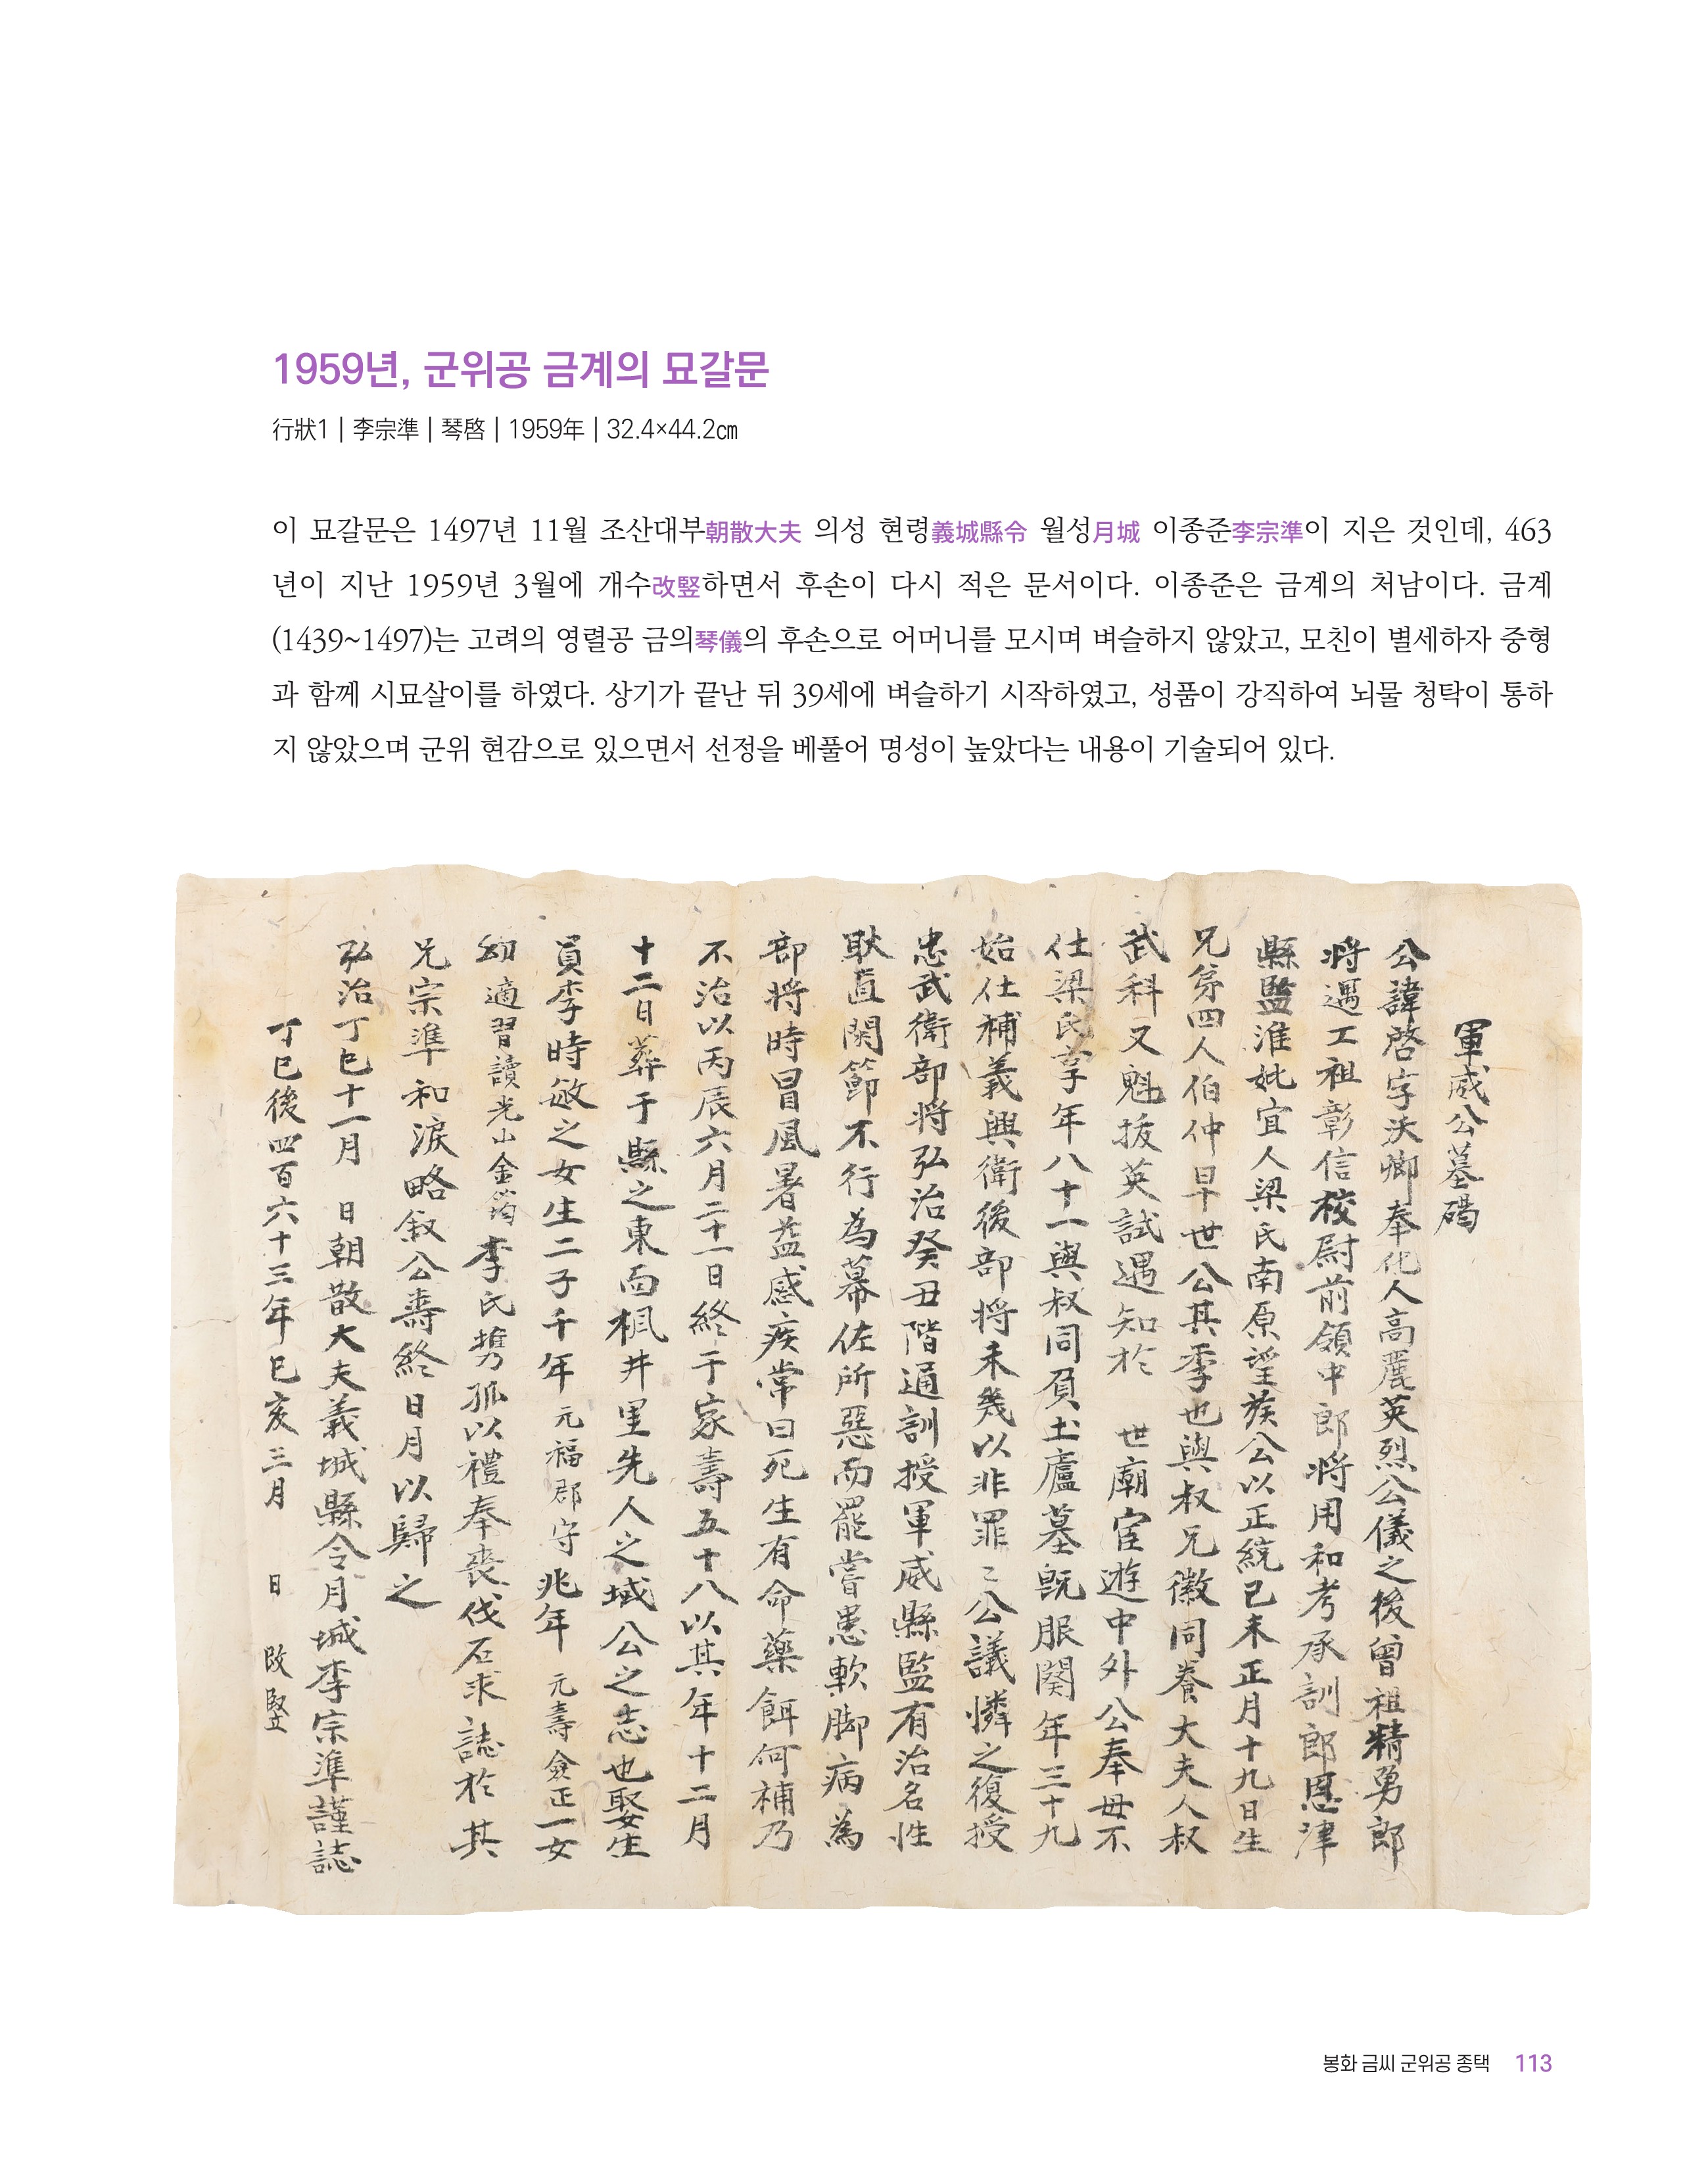 1959년, 군위공 금계의 묘갈문
行狀1 | 李宗準 | 琴啓 | 1959年 | 32.4×44.2㎝
이 묘갈문은 1497년 11월 조산대부朝散大夫 의성 현령義城縣令 월성月城 이종준李宗準이 지은 것인데, 463
년이 지난 1959년 3월에 개수改竪하면서 후손이 다시 적은 문서이다. 이종준은 금계의 처남이다. 금계
(1439~1497)는 고려의 영렬공 금의琴儀의 후손으로 어머니를 모시며 벼슬하지 않았고, 모친이 별세하자 중형
과 함께 시묘살이를 하였다. 상기가 끝난 뒤 39세에 벼슬하기 시작하였고, 성품이 강직하여 뇌물 청탁이 통하
지 않았으며 군위 현감으로 있으면서 선정을 베풀어 명성이 높았다는 내용이 기술되어 있다.
軍威公墓碣
公諱啓字沃卿奉化人高麗英烈公儀之後曾祖精勇郎
將遇工祖彰信校尉前領中郎將用和考承訓郎恩津
縣監淮妣宜人梁氏南原望族公以正統己未正月十九日生
兄弟四人伯仲早世公其季也與叔兄徽同養大夫人叔
武科又魁拔英試遇知於 世廟宦遊中外公奉母不
仕梁氏享年八十一與叔同負土廬墓旣服闋年三十九
始仕補義興衛後部將未幾以非罪〻公議憐之復授
忠武衛部將弘治癸丑階通訓授軍威縣監有治名性
耿直関節不行為幕佐所惡而罷嘗患軟脚病為
部將時冒風暑益感疾常曰死生有命藥餌何補乃
不治以丙辰六月二十一日終于家壽五十八以其年十二月
十二日葬于縣之東面楓井里先人之域公之志也娶生
員李時敏之女生二子千年 元福郡守 兆年 元壽僉正 一女
幼適習讀光山金筠李氏携孤以禮奉喪伐石求誌於其
兄宗準和淚略叙公壽終日月以歸之
弘治丁巳十一月 日朝散大夫義城縣令月城李宗準謹誌
丁巳後四百六十三年己亥三月 日 改竪
봉화 금씨 군위공 종택 113